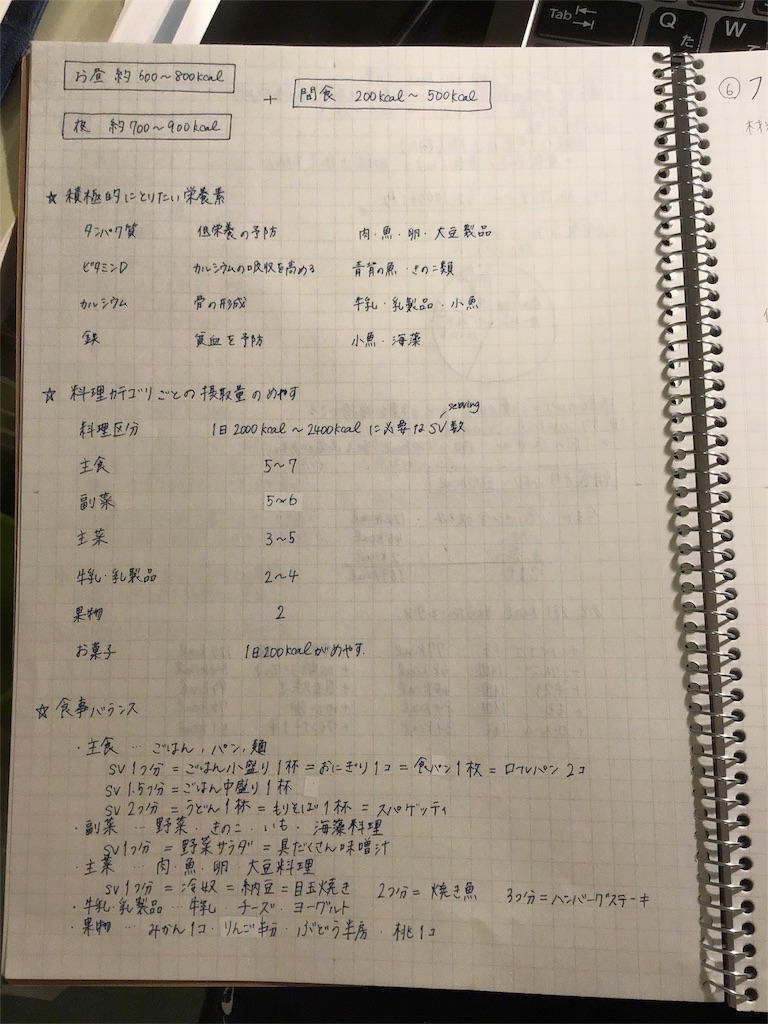 Tab
Q
W
た
て
お昼 約600~800kcal
+ 間食 200kcal~500kcal
夜 約700~900kcal
☆ 積極的にとりたい栄養素
タンパク質 低栄養の予防 肉・魚・卵・大豆製品
ビタミンD カルシウムの吸収を高める 青背の魚・きのこ類
カルシウム 骨の形成 牛乳・乳製品・小魚
鉄 貧血を予防 小魚・海藻
☆ 料理カテゴリごとの摂取量のめやす
serving
料理区分 1日2000kcal~2400kcalに必要なSV数
主食 5~7
副菜 5~6
主菜 3~5
牛乳・乳製品 2~4
果物 2
お菓子 1日200kcalがめやす.
☆ 食事バランス
・主食 … ごはん, パン, 麺
SV1つ分 = ごはん小盛り1杯 = おにぎり1コ = 食パン1枚 = ロールパン2コ
SV1.5つ分 = ごはん中盛り1杯
SV2つ分 = うどん1杯 = もりそば1杯 = スパゲッティ
・副菜 … 野菜・きのこ・いも・海藻料理
SV1つ分 = 野菜サラダ = 具だくさん味噌汁
・主菜 … 肉・魚・卵・大豆料理
SV1つ分 = 冷奴 = 納豆 = 目玉焼き 2つ分 = 焼き魚 3つ分 = ハンバーグステーキ
・牛乳・乳製品 … 牛乳・チーズ・ヨーグルト
・果物 … みかん1コ・りんご半分・ぶどう半房・桃1コ
⑥フ
材